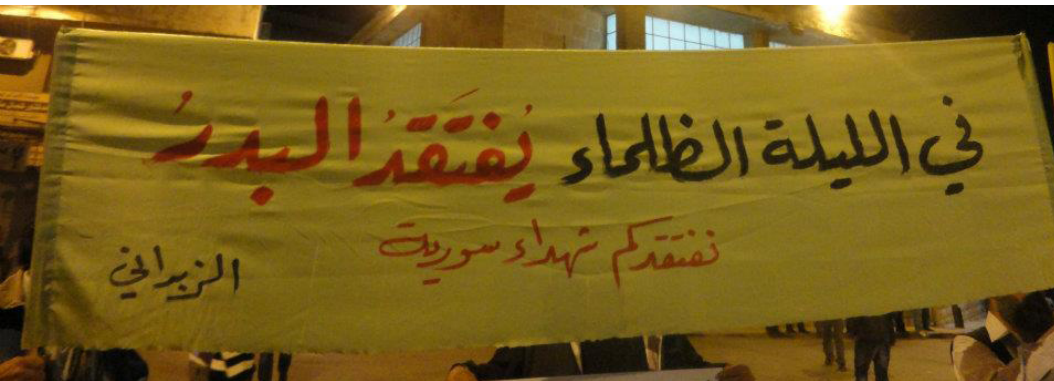 في الليلة الظلماء يُفتَقدُ البدرُ
نفتقدكم شهداء سورية
الزبداني